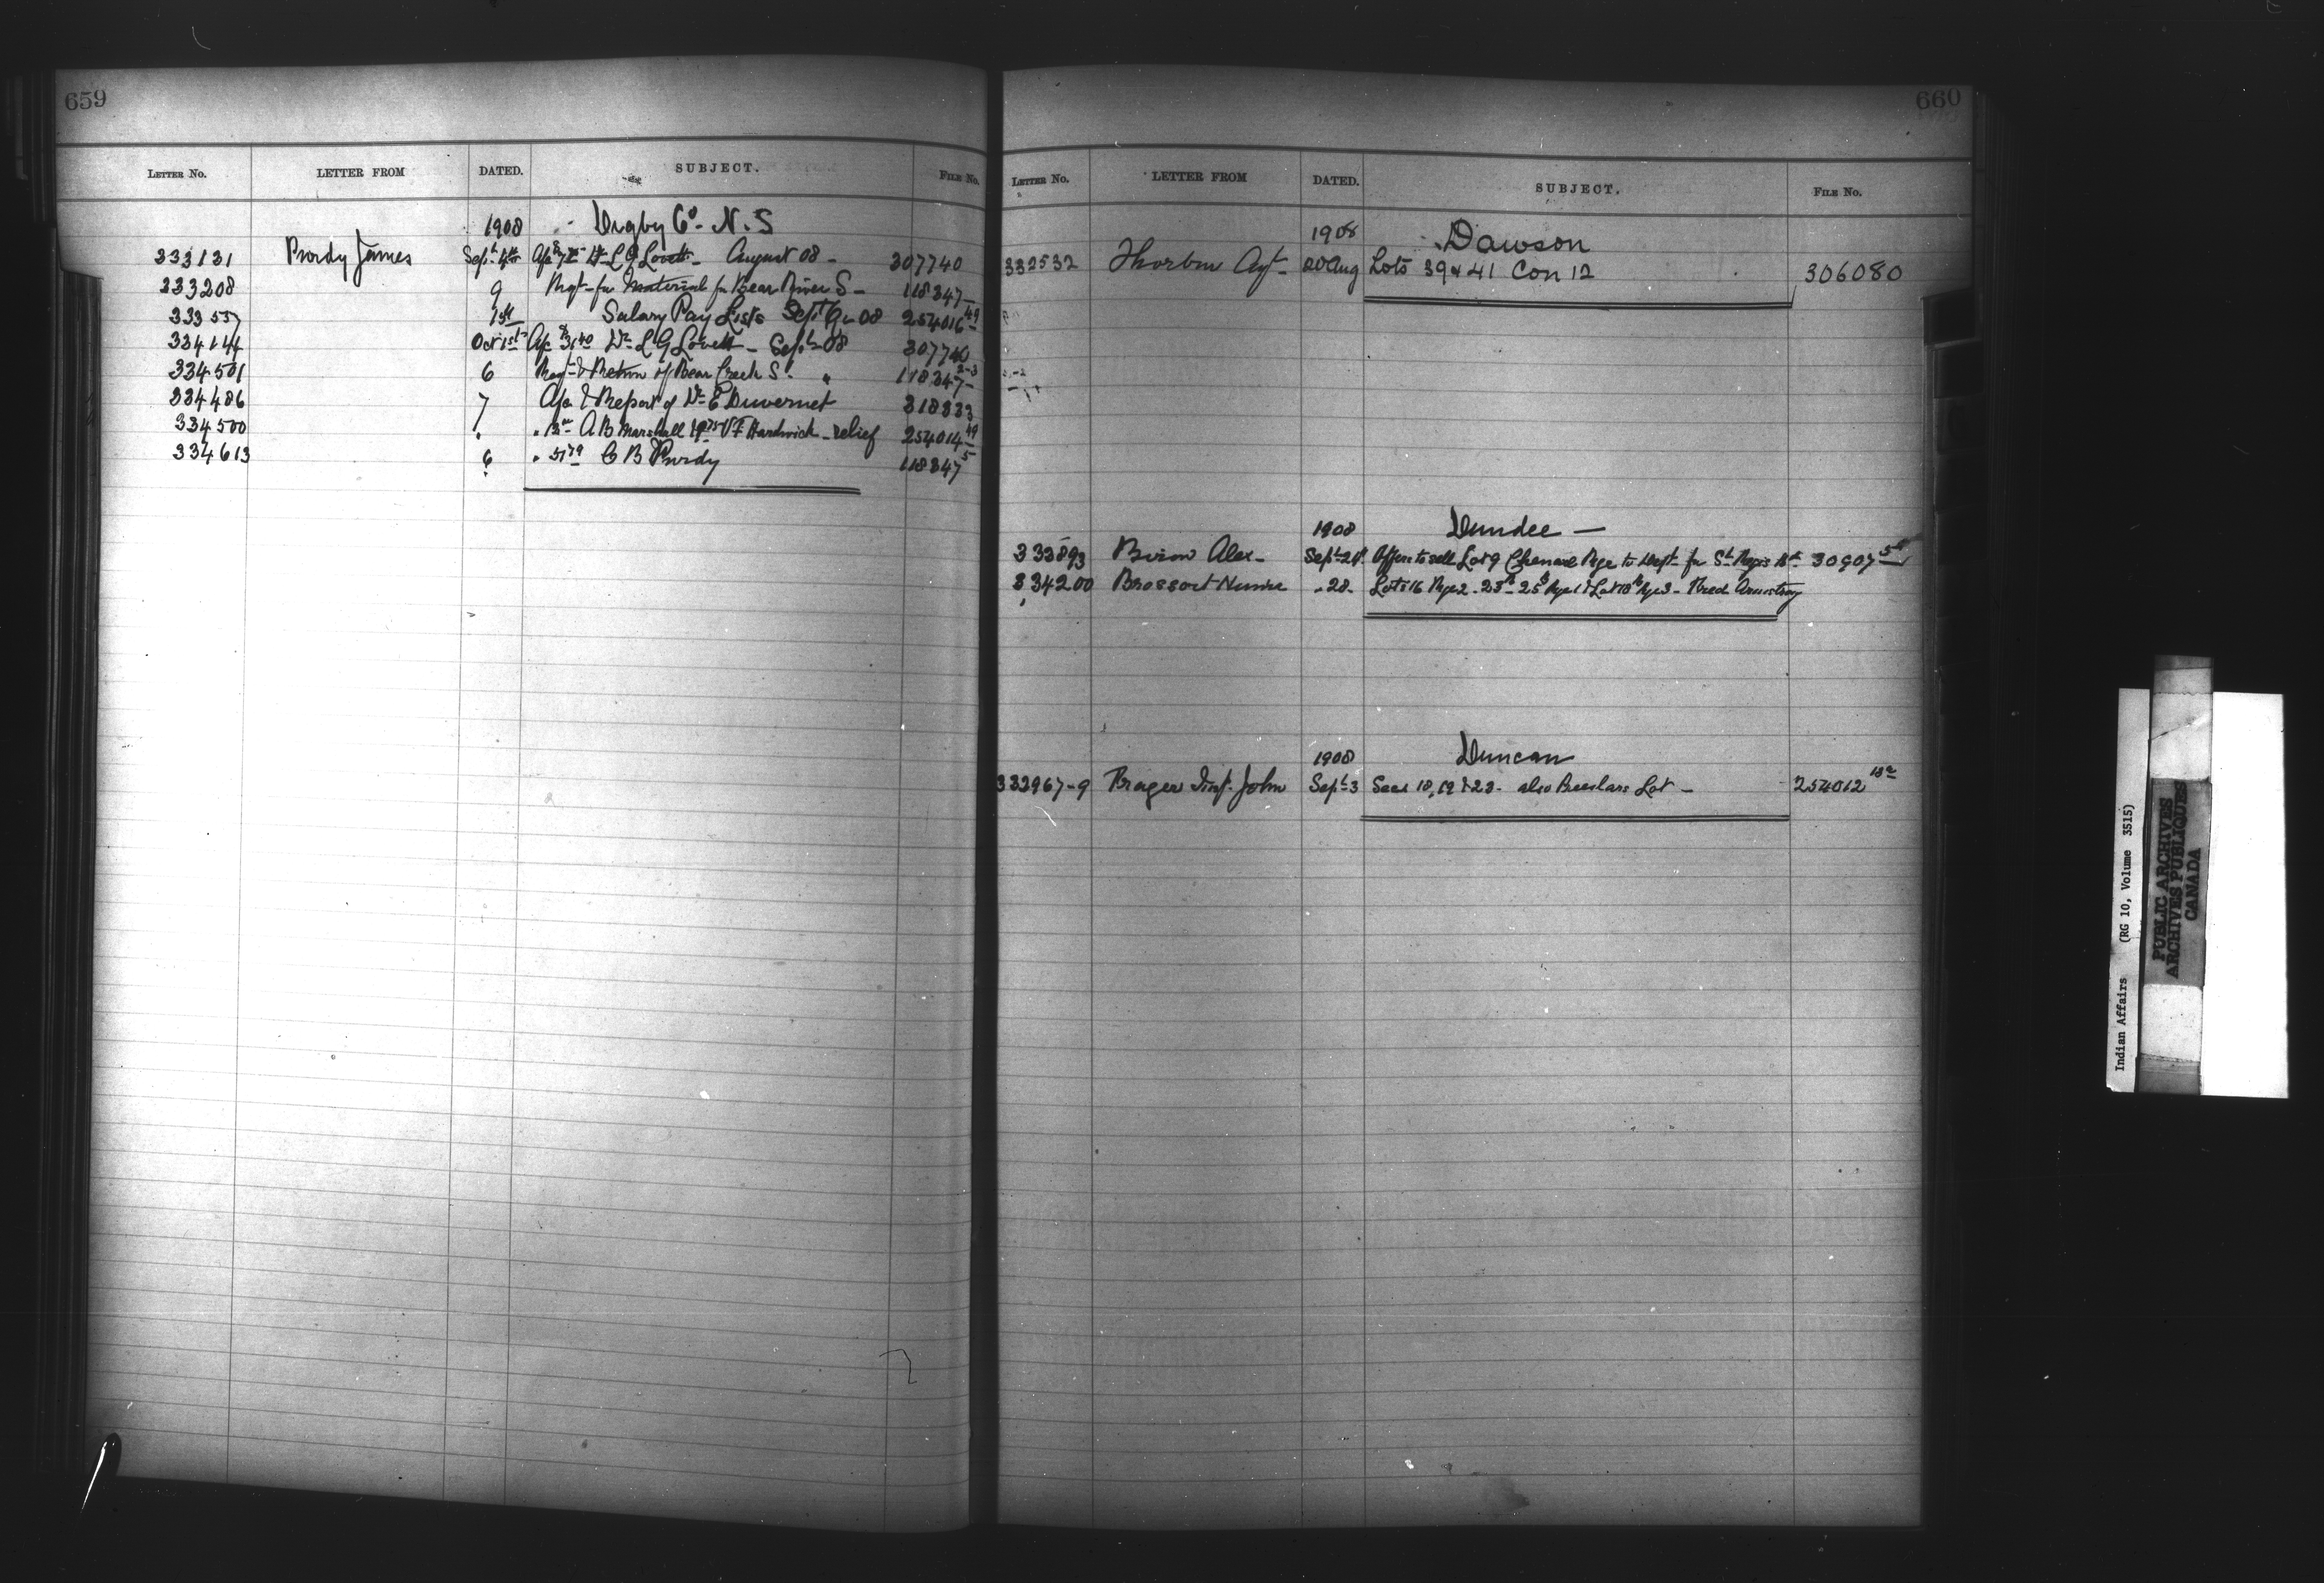 659
LETTER NO. LETTER FROM DATED. SUBJECT. FILE No.
1908 Digby Co. N.S
333131 Purdy James Sept 4th L G Lovett - August 08 - 307740
333208 9 Reqt - for Material for Bear River S - 118347
33357 1st Salary Pay Lists Sept Qr 08 254016 49
334144 Oct 1st L G Lovett - Sept 08 307740
334501 6 Reqt & Return of Bear Creek S. " 118347 2-3
334486 7 & Report of Dr E Duvernet 318833
334500 " A B Marshall V F Hardwick - relief 254014 49
334613 6 C B Purdy 118347 5
660
LETTER NO. LETTER FROM DATED. SUBJECT. FILE No.
1908 Dawson
332532 Thorburn Agt - 20 Aug Lots 39 & 41 Con 12 306080
1908 Dundee -
333893 Alex - Sept 24 Offers to sell Lot 9 Rge to Dept for St Regis 30907
334200 " 28 - Lots 16 Rge 2 - 23 - 25 Rge 1 & Lot 18 Rge 3 - Fred Armstrong
1908 Duncan
332967-9 Prager Insp. John Sept 3 Secs 18, 19 & 23 - also Lot - 254012
Indian Affairs (RG 10, Volume 3515)
PUBLIC ARCHIVES
ARCHIVES PUBLIQUES
CANADA